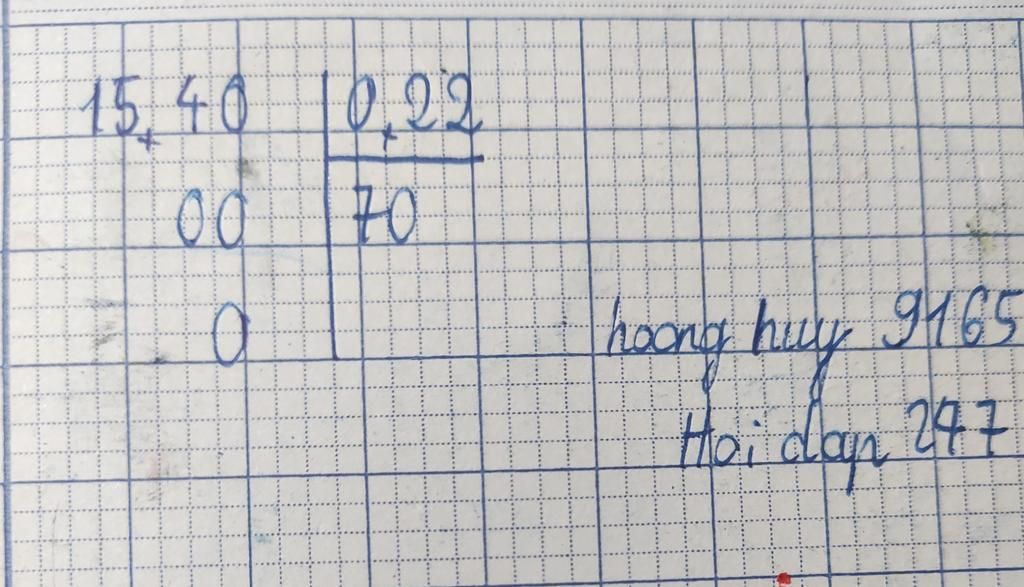 15,40 0,22
00 70
0
hoong huy 9165
Hoi dap 247